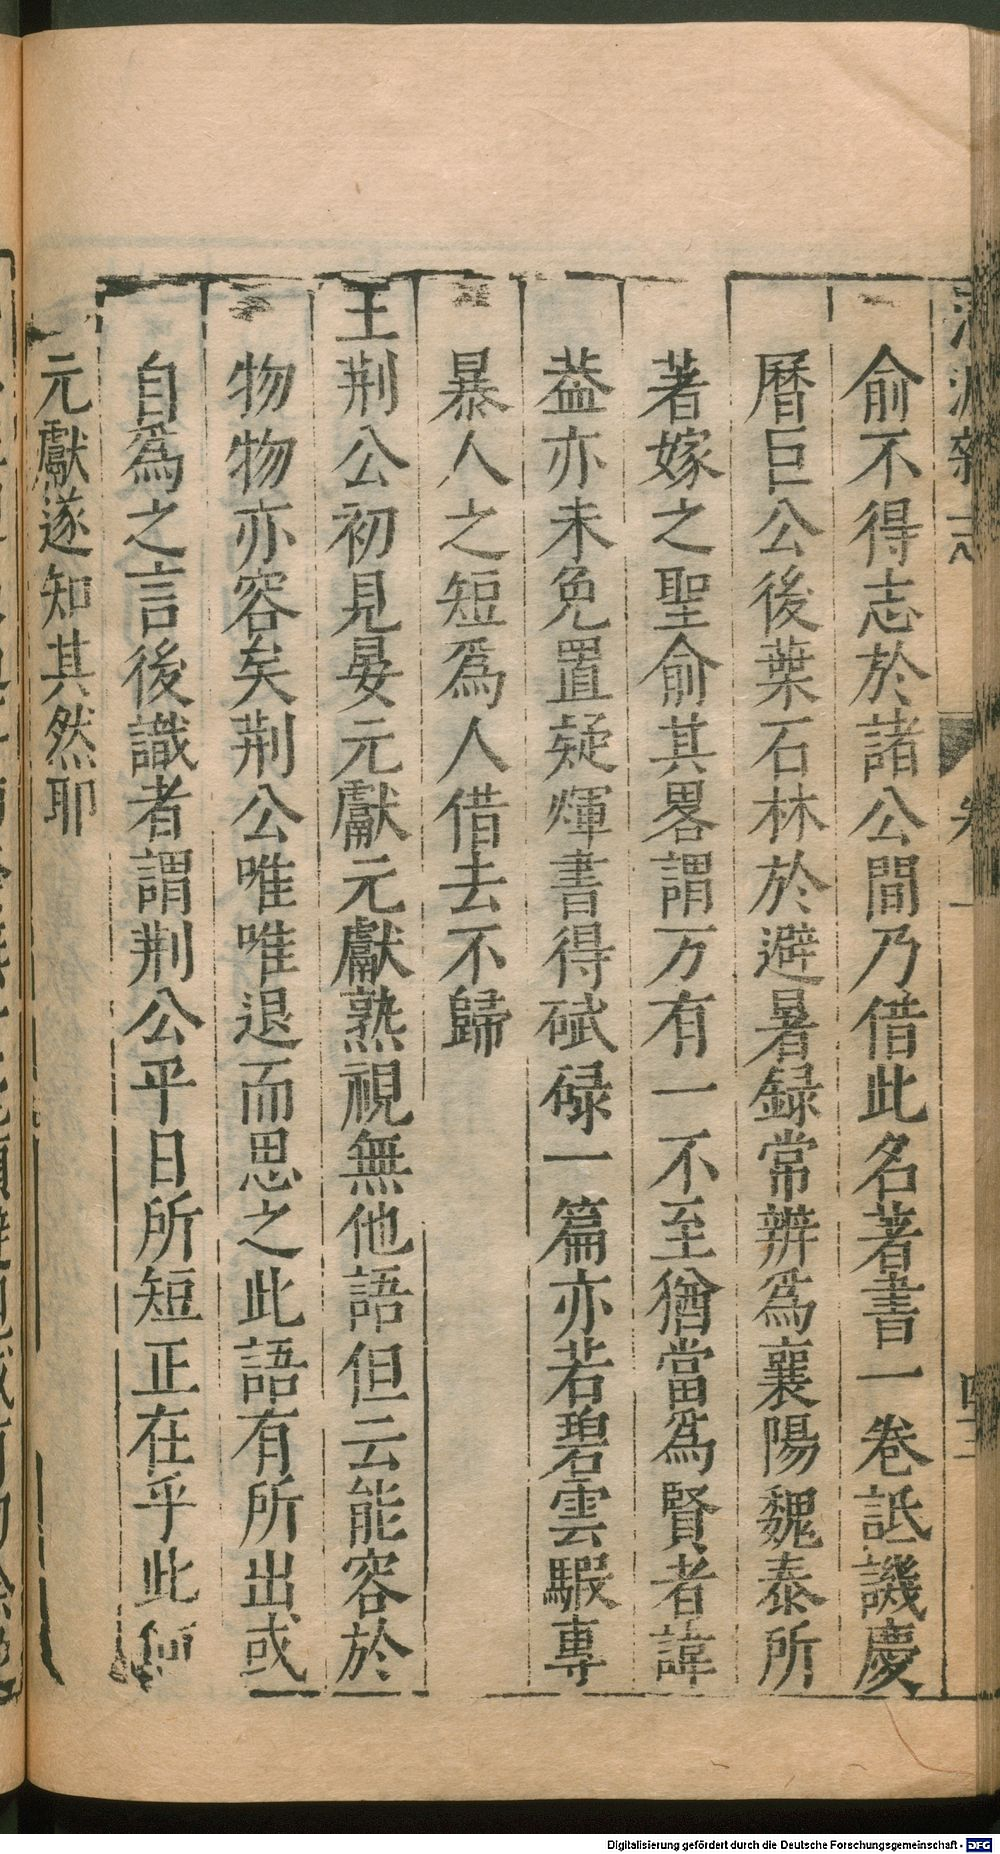 清波雜志
卷
俞不得志於諸公間乃借此名著書一卷詆譏慶
曆巨公後葉石林於避暑録常辨爲襄陽魏泰所
著嫁之聖俞其畧謂万有一不至猶當爲賢者諱
葢亦未免置疑煇書得碔碌一篇亦若碧雲騢專
暴人之短爲人借去不歸
王荆公初見晏元獻元獻熟視無他語但云能容於
物物亦容矣荆公唯唯退而思之此語有所出或
自爲之言後識者謂荆公平日所短正在乎此何
元獻遂知其然耶
Digitalisierung gefördert durch die Deutsche Forschungsgemeinschaft - DFG